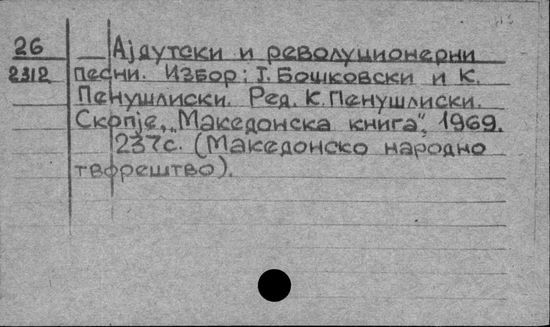 26
2312
Ајдутски и револуционерни
песни. Избор: Т. Бошковски и К.
Пенушлиски. Ред. К. Пенушлиски.
Скопје, „Македонска книга“, 1969.
237с. (Македонско народно
творештво).